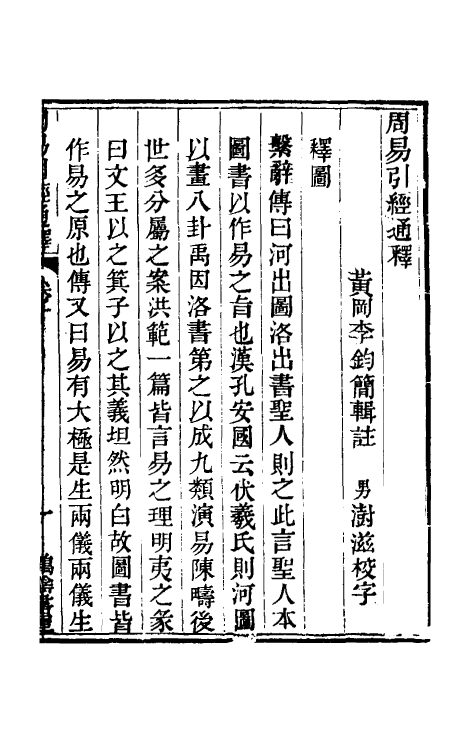 周易引經通釋
黃岡李鈞簡輯註 男澍滋校字
釋圖
繫辭傳曰河出圖洛出書聖人則之此言聖人本
圖書以作易之旨也漢孔安國云伏羲氏則河圖
以畫八卦禹因洛書第之以成九類演易陳疇後
世多分屬之案洪範一篇皆言易之理明夷之彖
曰文王以之箕子以之其義坦然明白故圖書皆
作易之原也傳又曰易有大極是生兩儀兩儀生
周易引經通釋 卷十